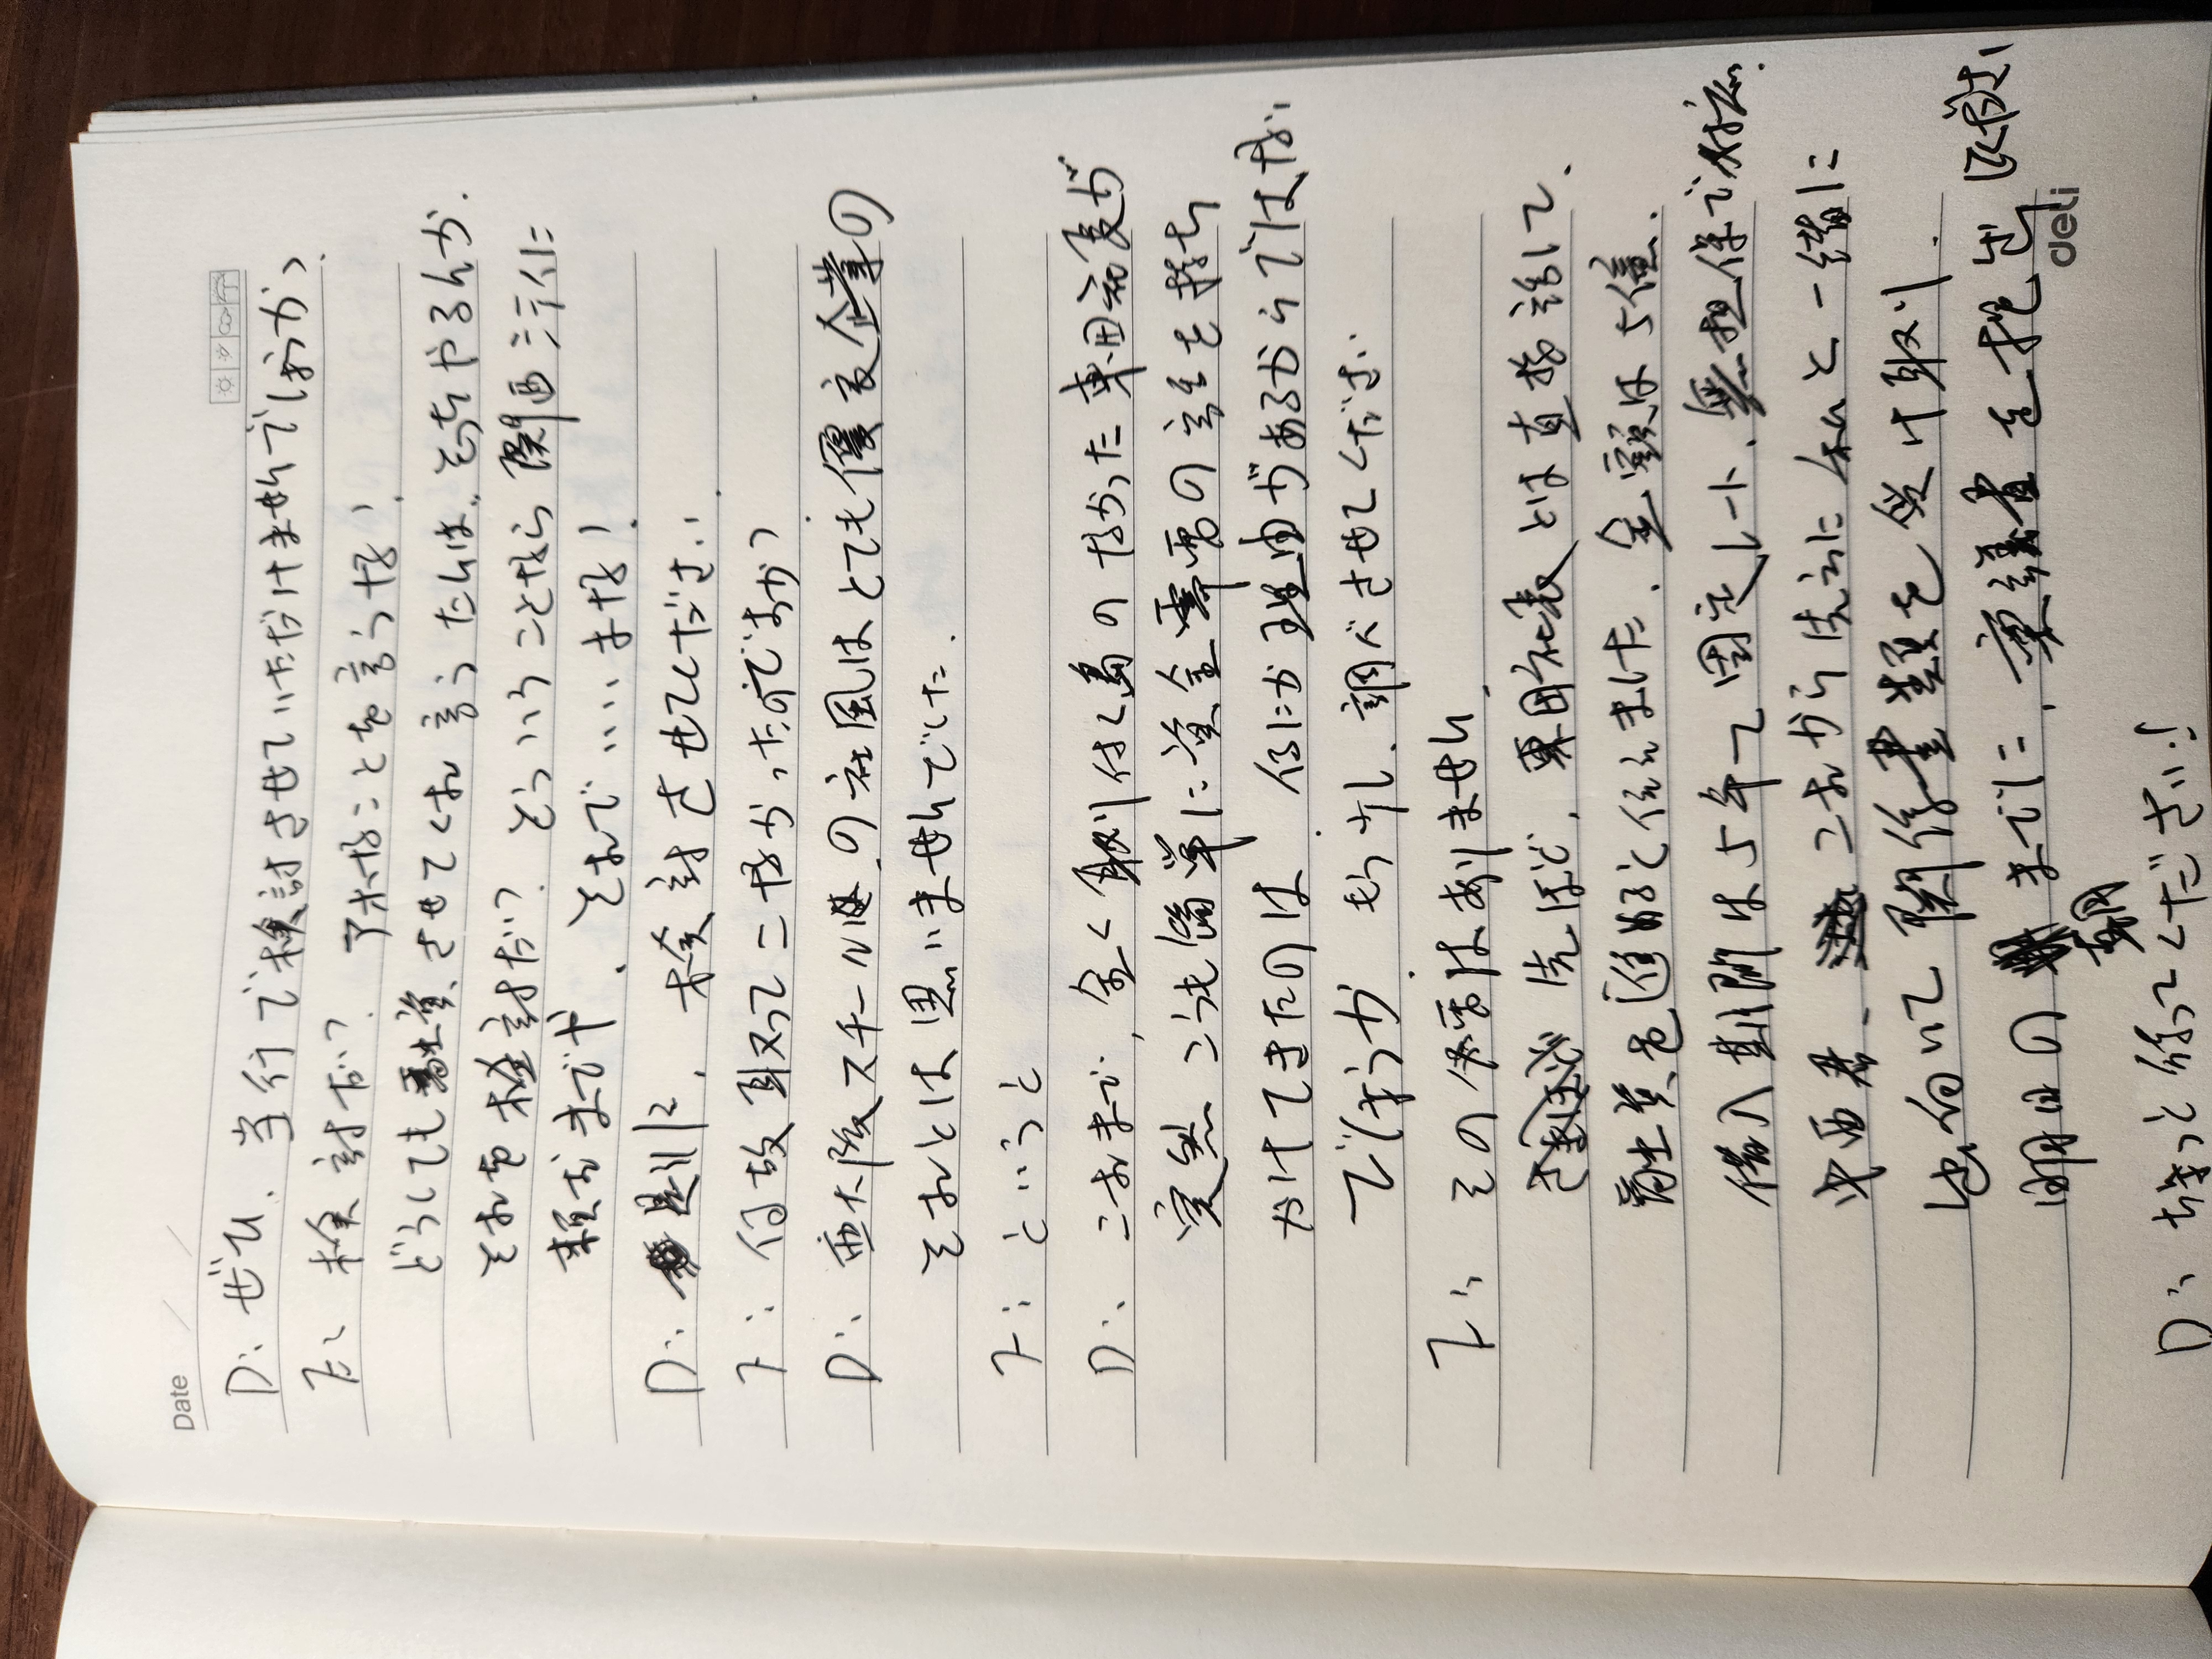 Date
D: ぜひ、当行で検討させていただけませんでしょうか、
F: 検討だ? アホなことを言うな!
どうしても融資させてくれ言うたんは、そちやるんか.
それを検討だ? どういうことなら 関西シティに
頼むまでや. それで……まな!
D: 是非、検討させてください.
F: 何故取ってこなかったのですか?
D: 西大阪スチール の社風はとても優良企業の
それとは思いませんでした.
F: というと
D: これまで、全く取り付く島のなかった東田社長が
突然、こうも簡単に資金需要の話を持ち
かけてきたのは、何にか理由があるからではない
でしょうか. もう少し、調べさせてください.
F: その必要はありません.
先ほど、東田社長とは直接話して.
融資を進めると伝えました. 金額は5億.
借入期間は5年で固定レート、無担保で対応.
半西君、これから先方に私と一緒に
出向いて関係書類を受け取り.
明日の朝までに、稟議書を提出しなさい
deli
D: ちょっと待ってください!